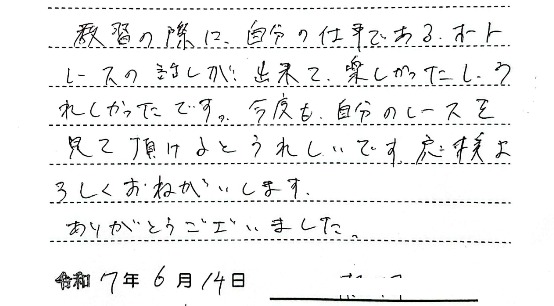 教習の際に、自分の仕事である、オート
レースの話しが出来て、楽しかったし、う
れしかったです。今度も、自分のレースを
見て頂けるとうれしいです 応援よ
ろしくおねがいします、
ありがとうございました。
令和 7年 6月 14日